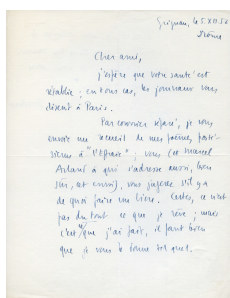 Grignan, le 5.XII.56
Drôme
Cher ami,
j'espère que votre santé est
rétablie; en tous cas, les journaux vous
disent à Paris.
Par courrier séparé, je vous
envoie un recueil de mes poèmes, posté-
rieurs à "L'Effraie"; vous (et Marcel
Arland à qui s'adresse aussi, bien
sûr, cet envoi), vous jugerez s'il y a
de quoi faire un livre. Certes, ce n'est
pas du tout ce que je rêve; mais
c'est ce que j'ai fait, il faut bien
que je vous le donne tel quel.